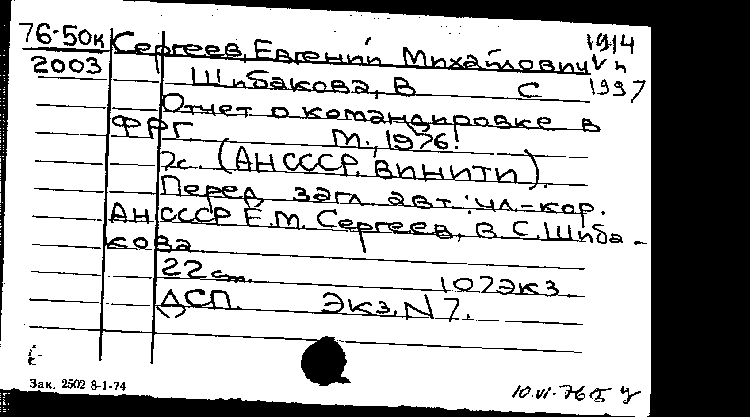 76-50к Сергеев, Евгений Михайлович 1914
2003 Шибакова, В С 1997
Отчет о командировке в
ФРГ М., 1976.
2с. (АН СССР. ВИНИТИ).
Перед загл. авт.: чл.-кор.
АН СССР Е.М. Сергеев, В.С. Шиба-
кова
22см. 107экз.
ДСП. Экз. N 7.
Зак. 2502 8-1-74
10.VI.76